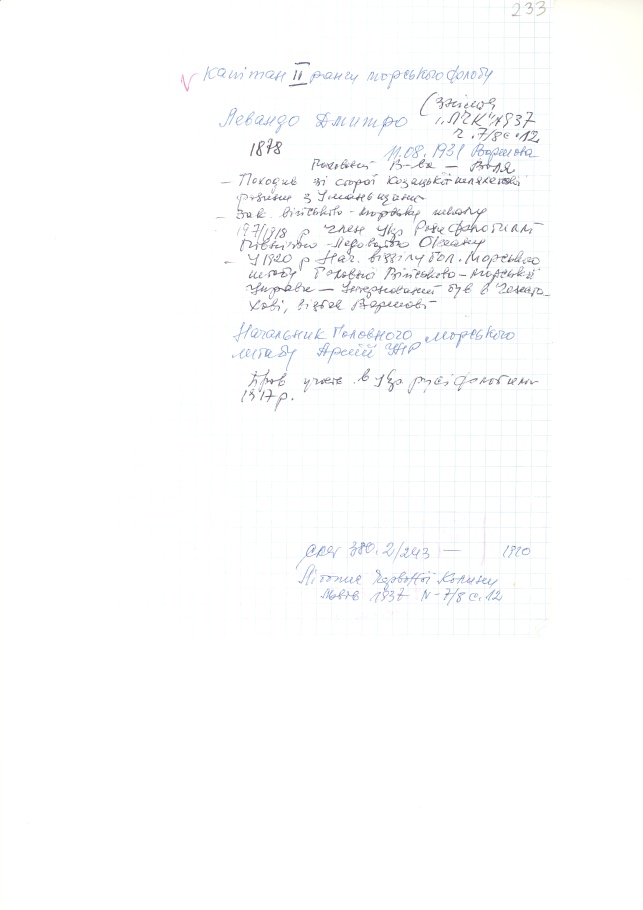 233
Капітан II рангу морського флоту
Левандо Дмитро
(знімок
"ЛЧК" 1937
ч. 7/8 с. 12
1878
11.08.1931 Варшова
Похований В-ва — Воля
– Походив зі старої Козацької шляхетської
родини з Уманьщини
– Зак. військово-морську школу
1917/1918 р член Укр Ради флотилії
Північно-Ледовитого Океану
– У 1920 р Нач. відділу бол. Морського
штабу Головної Військово-морської
Управи — Інтернований був в Ченсто-
хові, відтак Варшові
Начальник Головного морського
штабу Армії УНР
Брав участь в Укр русі флотилии
1917 р.
380.2/243 — 1920
Літопис Червоної Калини
Львів 1937 N-7/8 с. 12